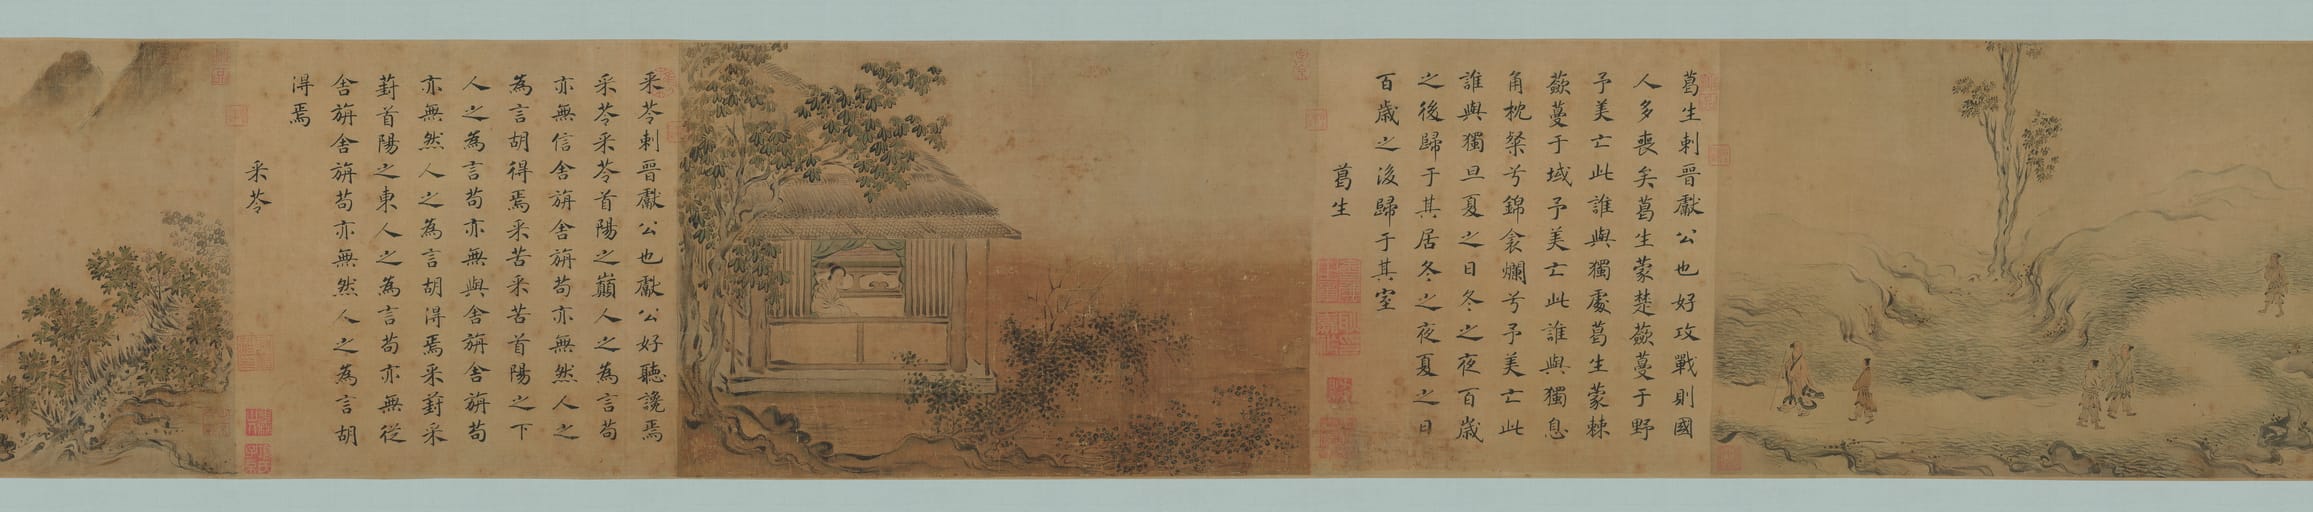 葛生刺晉獻公也好攻戰則國
人多喪矣葛生蒙楚蘞蔓于野
予美亡此誰與獨處葛生蒙棘
蘞蔓于域予美亡此誰與獨息
角枕粲兮錦衾爛兮予美亡此
誰與獨旦夏之日冬之夜百歲
之後歸于其居冬之夜夏之日
百歲之後歸于其室
葛生
采苓刺晉獻公也獻公好聽讒焉
采苓采苓首陽之巔人之為言苟
亦無信舍旃舍旃苟亦無然人之
為言胡得焉采苦采苦首陽之下
人之為言苟亦無與舍旃舍旃苟
亦無然人之為言胡得焉采葑采
葑首陽之東人之為言苟亦無從
舍旃舍旃苟亦無然人之為言胡
得焉
采苓